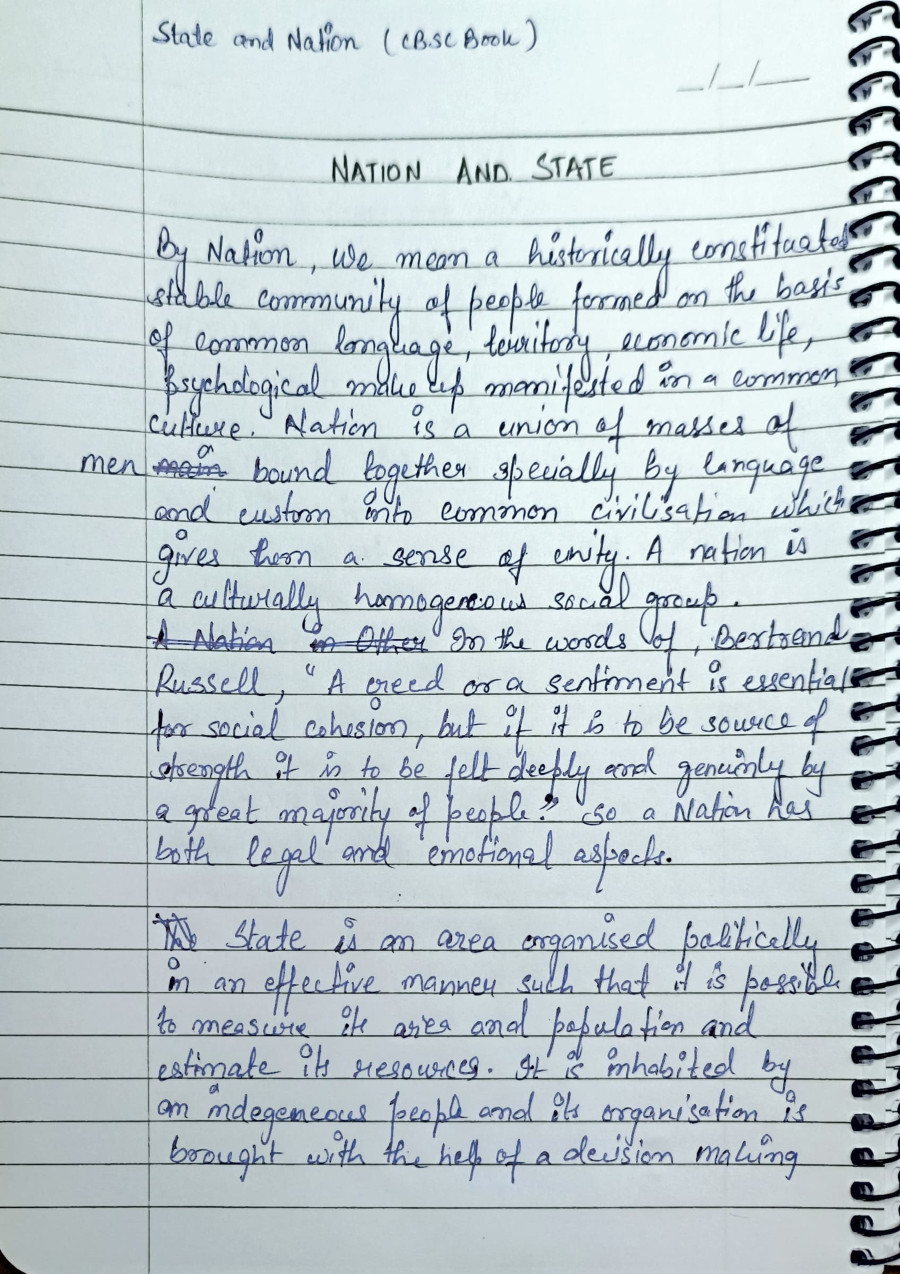 State and Nation (CBSC Book)
_/_/__
NATION AND STATE
By Nation, we mean a historically constituated
stable community of people formed on the basis
of common language, territory, economic life,
psychological make up manifested in a common
culture. Nation is a union of masses of
men main bound together specially by language
and custom into common civilisation which
gives them a sense of unity. A nation is
a culturally homogeneous social group.
A Nation in Other In the words of, Bertrand
Russell, "A creed or a sentiment is essential
for social cohesion, but if it is to be source of
strength it is to be felt deeply and genuinly by
a great majority of people." So a Nation has
both legal and emotional aspects.
State is an area organised politically
in an effective manner such that it is possible
to measure its area and population and
estimate its resources. It is inhabited by
an indegeneous people and its organisation is
brought with the help of a decision making